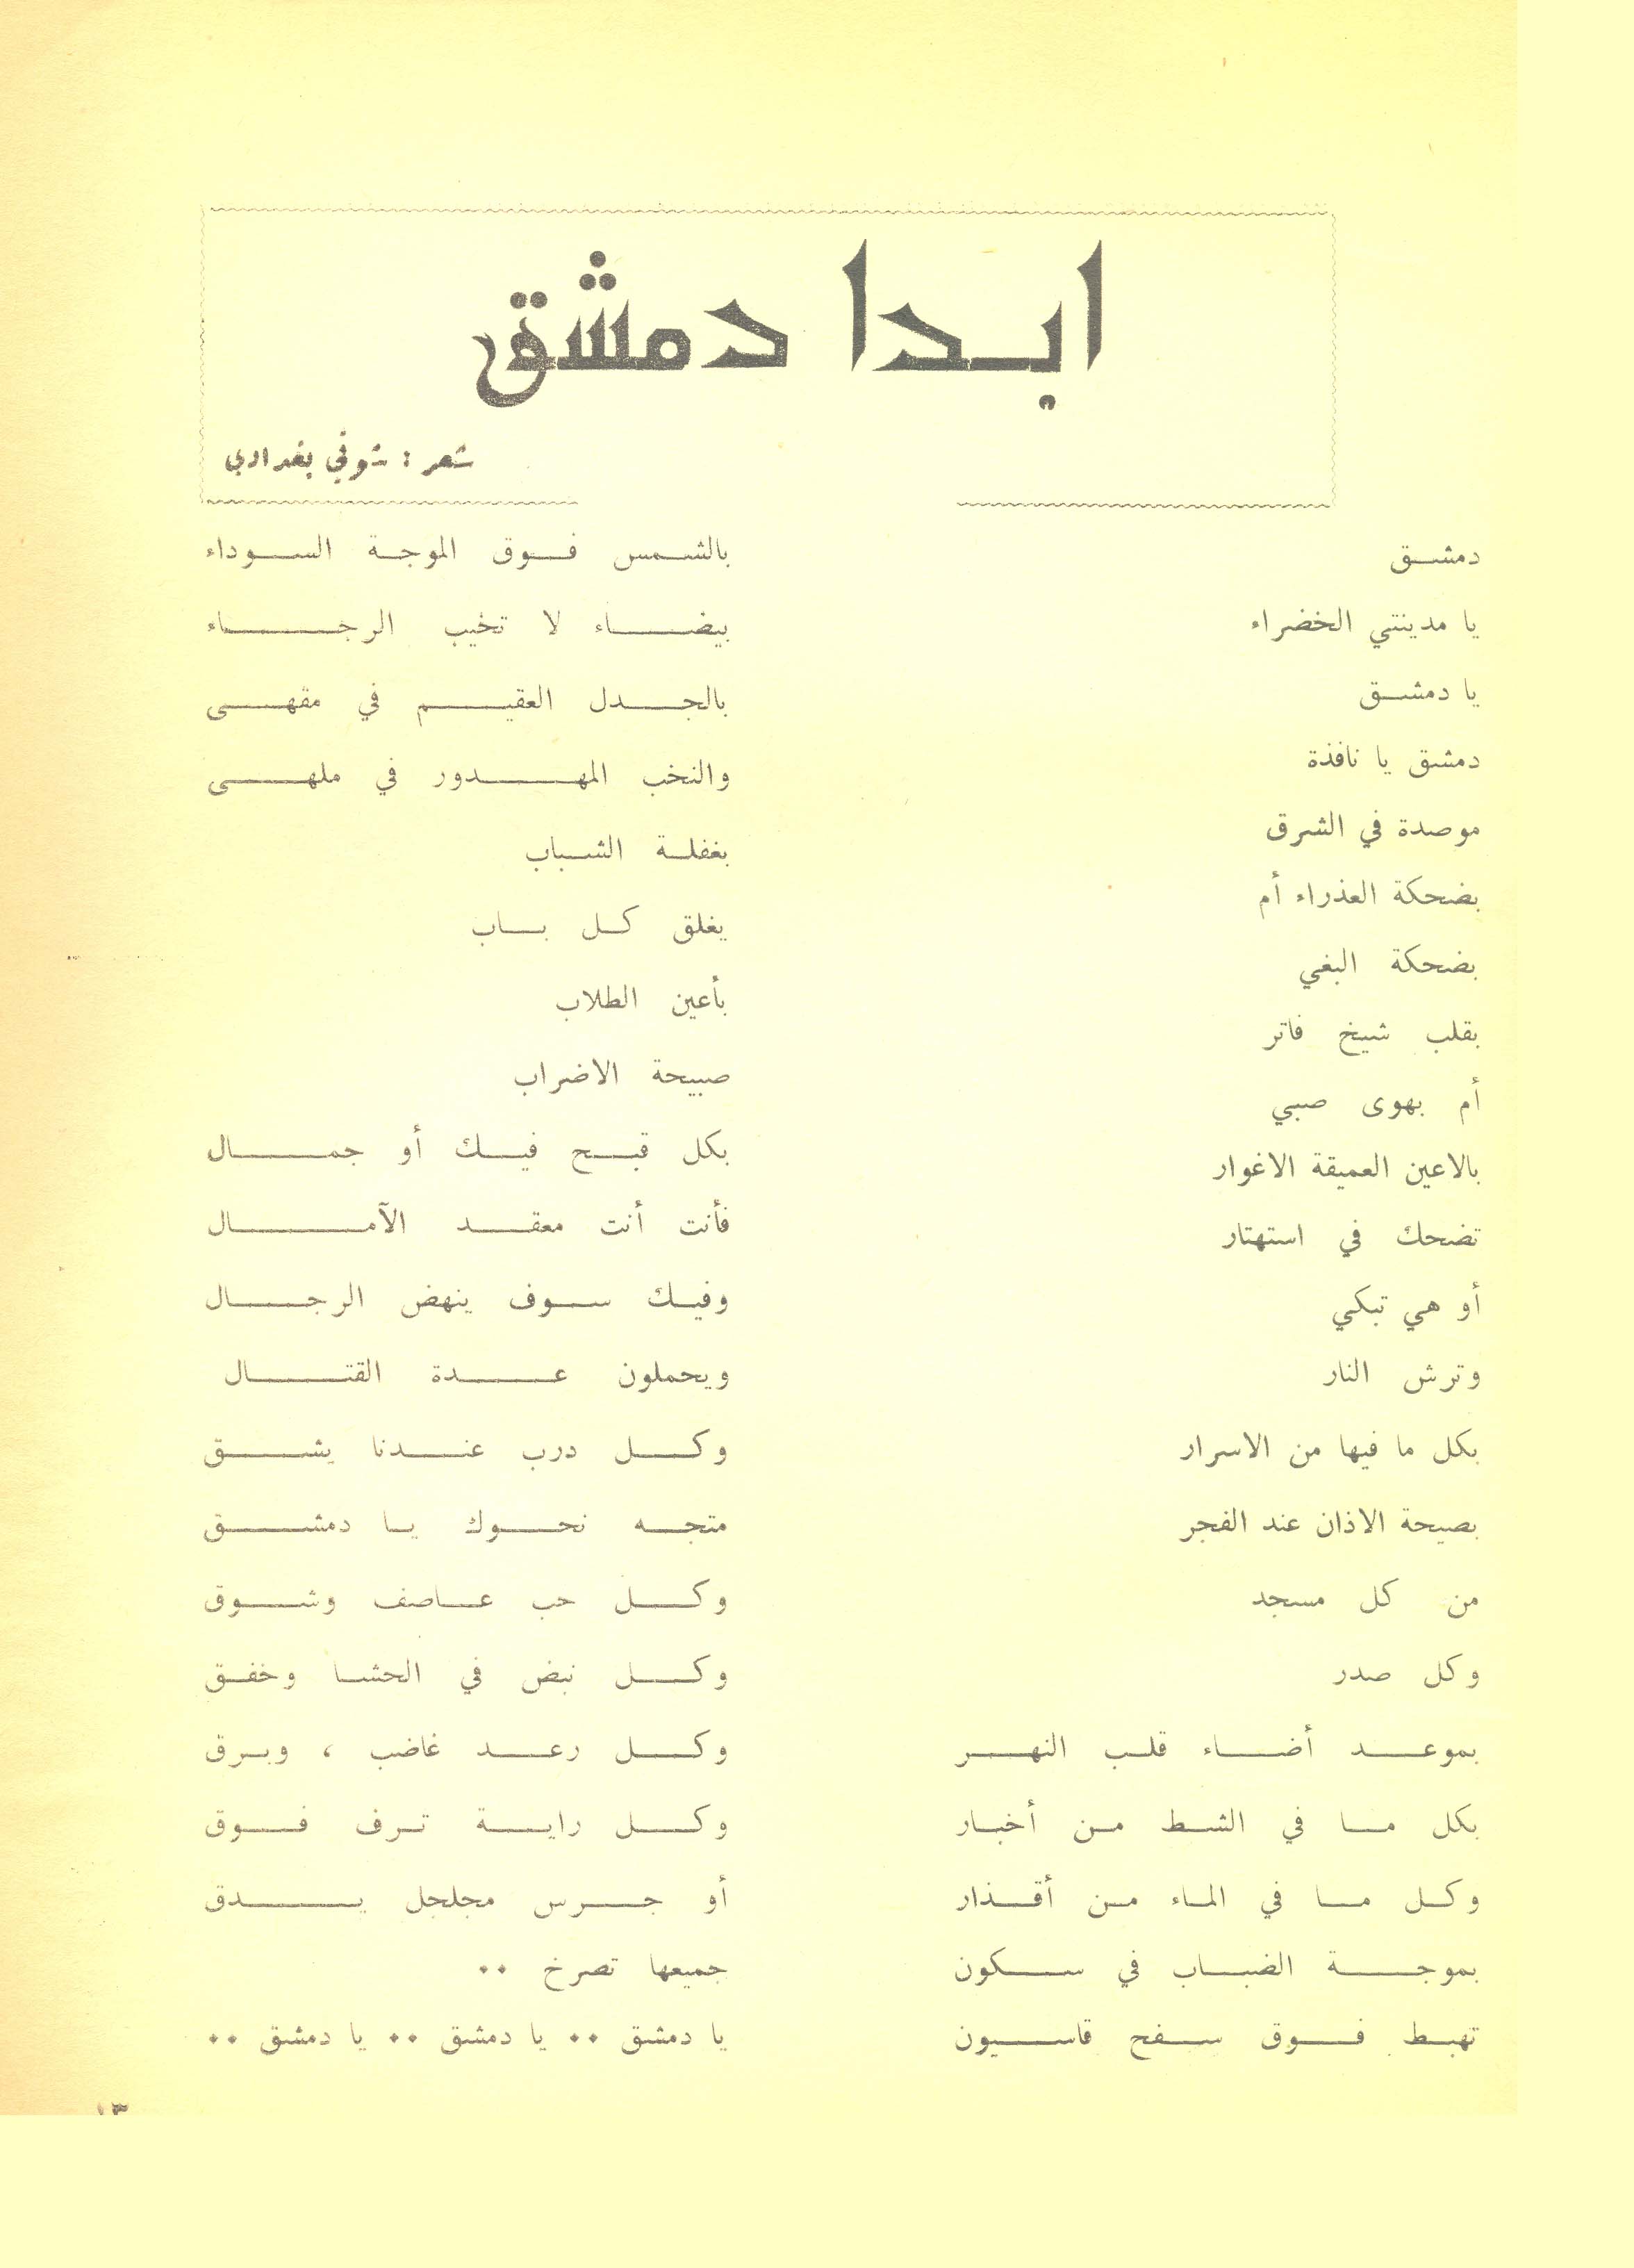 ابدا دمشق
شعر : شوقي بغدادي
دمشق
يا مدينتي الخضراء
يا دمشق
دمشق يا نافذة
موصدة في الشرق
بضحكة العذراء أم
بضحكة البغي
بقلب شيخ فاتر
أم بهوى صبي
بالاعين العميقة الاغوار
تضحك في استهتار
أو هي تبكي
وترش النار
بكل ما فيها من الاسرار
بصيحة الاذان عند الفجر
من كل مسجد
وكل صدر
بموعد أضاء قلب النهر
بكل ما في الشط من أخبار
وكل ما في الماء من أقذار
بموجة الضباب في سكون
تهبط فوق سفح قاسيون
بالشمس فوق الموجة السوداء
بيضاء لا تخيب الرجاء
بالجدل العقيم في مقهى
والنخب المهدور في ملهى
بغفلة الشباب
يغلق كل باب
بأعين الطلاب
صبيحة الاضراب
بكل قبح فيك أو جمال
فأنت أنت معقد الآمال
وفيك سوف ينهض الرجال
ويحملون عدة القتال
وكل درب عندنا يشق
متجه نحوك يا دمشق
وكل حب عاصف وشوق
وكل نبض في الحشا وخفق
وكل رعد غاضب ، وبرق
وكل راية ترف فوق
أو جرس مجلجل يدق
جميعها تصرخ ..
يا دمشق .. يا دمشق .. يا دمشق ..
١٣